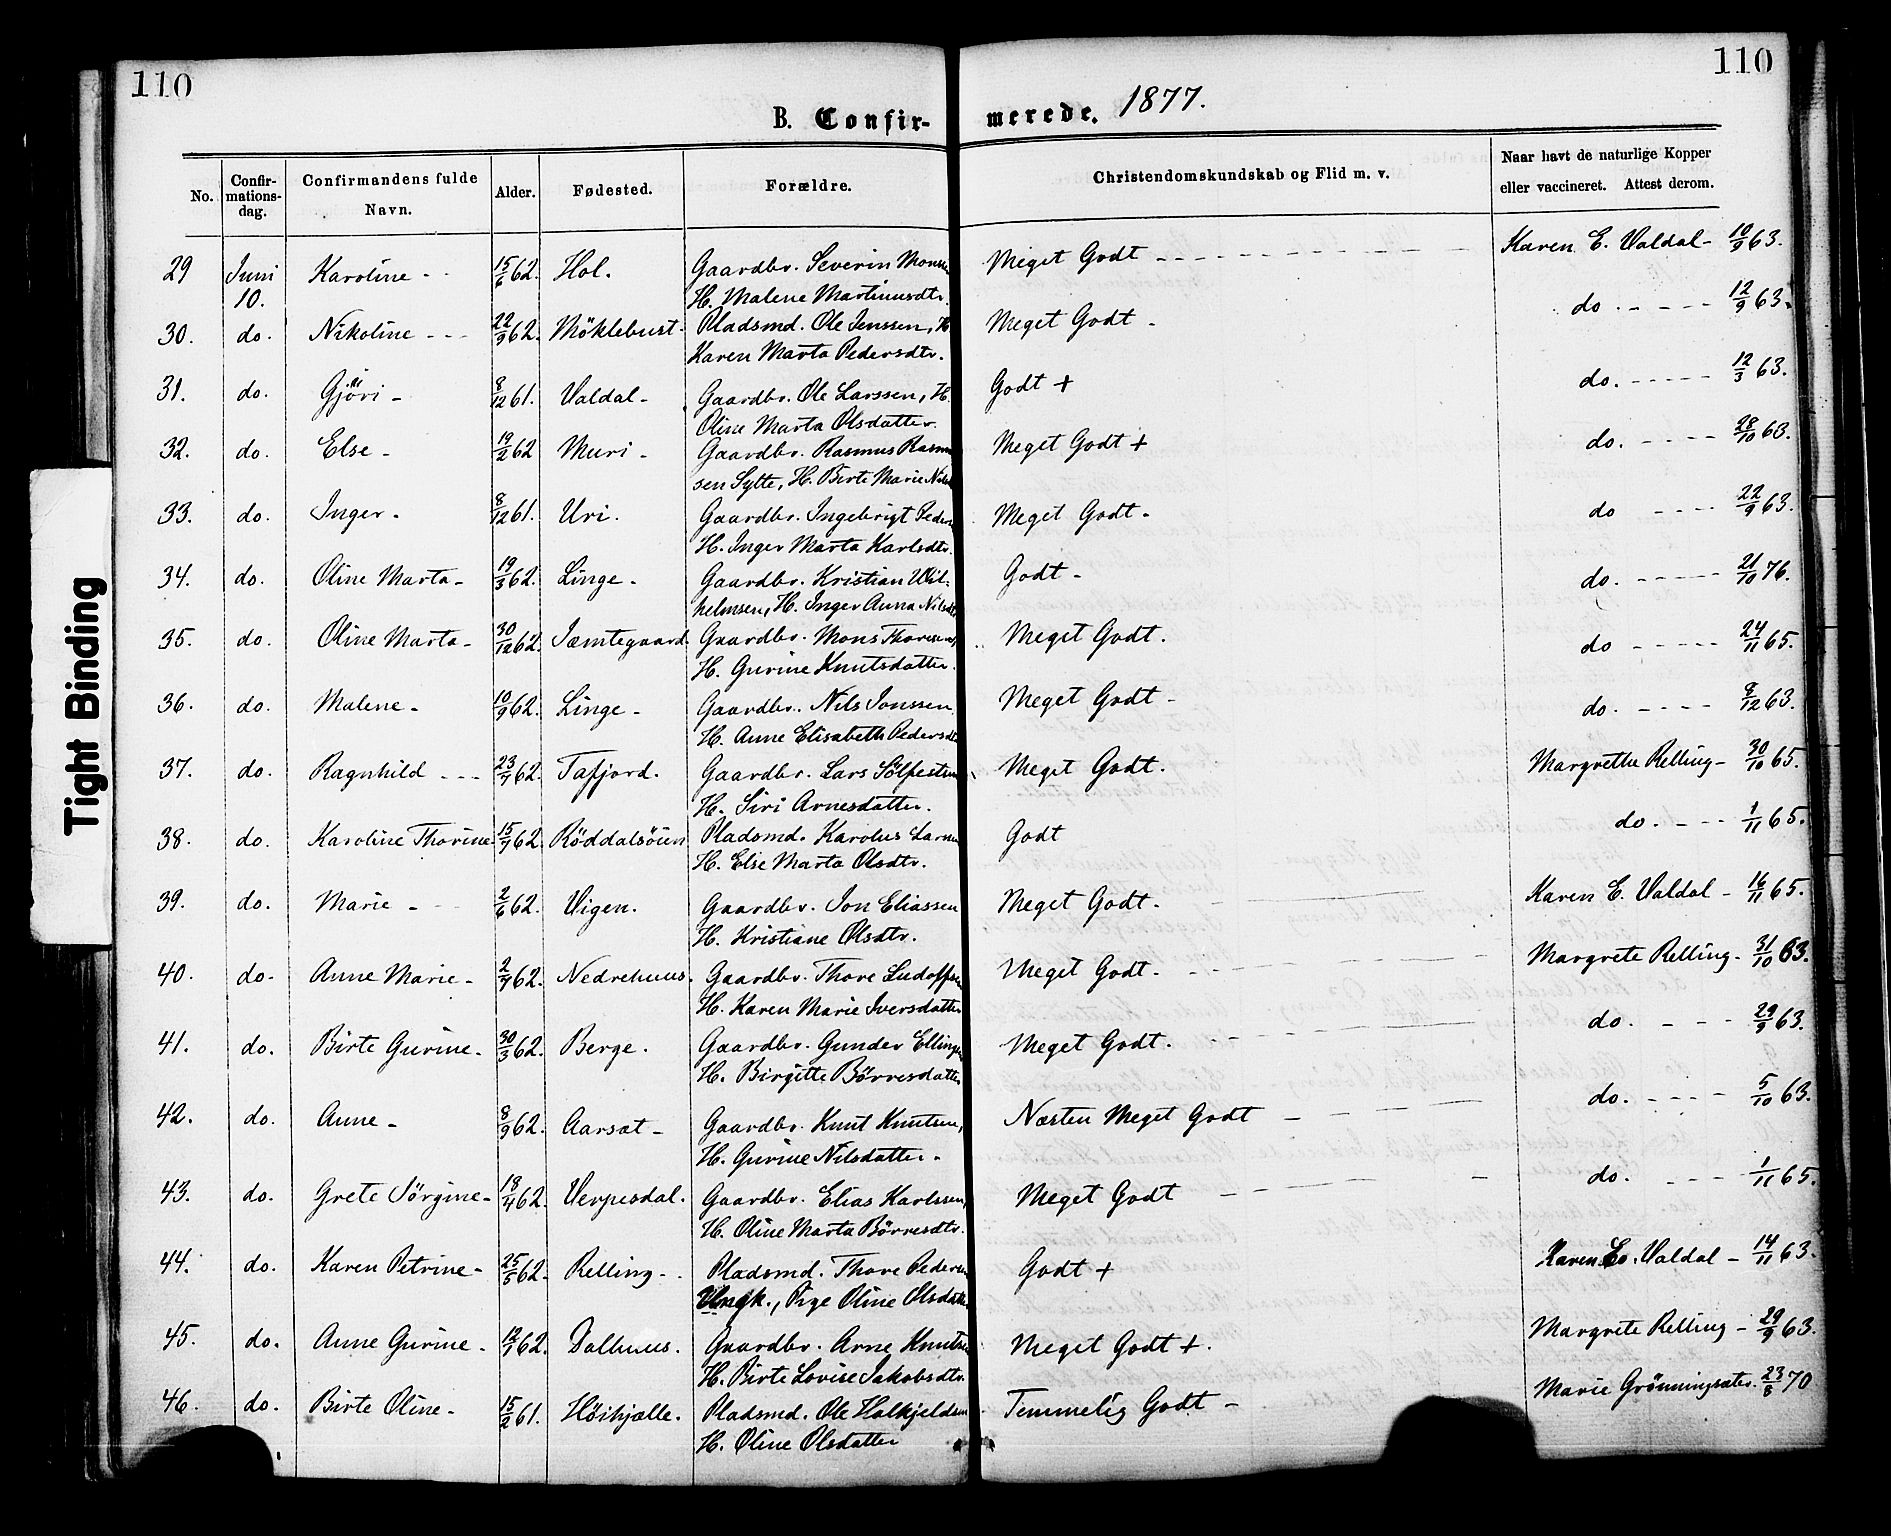 110
110
B. Confir-
merede. 1877.
No.
Confir-
mations-
dag.
Confirmandens fulde
Navn.
Alder.
Fødested.
Forældre.
Christendomskundskab og Flid m. v.
Naar havt de naturlige Kopper
eller vaccineret. Attest derom.
29 Juni 10. Karoline - - 15/6 62. Hol. Gaardbr. Severin Monsen Meget Godt - - - - Karen E. Valdal - 10/9 63.
H. Malene Martinusdtr.
30. do. Nikoline - - - 22/9 62. Möklebust. Pladsmd. Ole Jenssen, H. Meget Godt - do. - - - - 12/9 63.
Karen Marta Pedersdtr.
31. do. Gjöri - 8/12 61. Valdal - Gaardbr. Ole Larssen, H. Godt + do. - - - - 12/3 63.
Oline Marta Olsdatter.
32. do. Else - 19/2 62 Muri - Gaardbr. Rasmus Rasmu Meget Godt + do. - - - - 28/10 63.
sen Sylte, H. Birte Marie Nils
33. do. Inger - 8/12 61. Uri. Gaardbr. Ingebrigt Peders Meget Godt - do - - - - 22/9 63.
H. Inger Marta Karlsdtr.
34. do. Oline Marta - 19/3 62. Linge - Gaardbr. Kristian Wil- Godt - do. - - - - - 21/10 76.
helmsen, H. Inger Anna Nilsdt
35. do. Oline Marta - 30/12 62. Jæmtegaard. Gaardbr. Mons Thoresen, Meget Godt. do - - - - - 24/11 65.
H. Gurine Knutsdatter.
36. do. Malene - 10/9 62. Linge - Gaardbr. Nils Jonssen Meget Godt - do. - - - - 8/12 63.
H. Anne Elisabeth Pedersdt
37. do. Ragnhild - - - 23/7 62. Tafjord. Gaardbr. Lars Sölfestsen Meget Godt. Margrethe Relling - 30/10 65.
H. Siri Arnesdatter.
38. do. Karoline Thorine 15/7 62. Röddalsöien Pladsmd. Karolus Larsen Godt do. - - - 1/11 65.
H. Else Marta Olsdtr.
39. do. Marie - - 2/6 62. Vigen. Gaardbr. Jon Eliassen Meget Godt. Karen E. Valdal - 16/11 65.
H. Kristiane Olsdtr.
40. do - Anne Marie - 2/7 62. Nedrehuus. Gaardbr. Thore Ludolfsen Meget Godt. - - - Margrete Relling - 31/10 63.
H. Karen Marie Iversdatter
41. do. Birte Gurine - 30/3 62. Berge. Gaardbr. Gunder Ellings Meget Godt. - - do. - - - 29/9 63.
H. Birgitte Börresdatter
42. do. Anne - 8/9 62. Aarsæt - Gaardbr. Knut Knutsen, Næsten Meget Godt - - - do. - - - - 5/10 63.
H. Gurine Nilsdatter -
43. do. Grete Jörgine - 18/4 62. Verpesdal. Gaardbr. Elias Karlssen, Meget Godt - - - do. - - - 1/11 65.
H. Oline Marta Börresdtr.
44. do. Karen Petrine - 25/5 62. Relling - . Pladsmd. Thore Peders Godt + Karen E. Valdal - 14/11 63.
Ungk., Pige Oline Olsdatte
45. do. Anne Gurine - 12/7 62. Dalhuus. Gaardbr. Arne Knutsen Meget Godt +. Margrete Relling - 29/9 63.
H. Birte Lovise Jakobsdtr.
46. do. Birte Oline - 15/2 61. Höihjælle. Pladsmd. Ole Halkjeldsen Temmelig Godt - Marie Grönningsæter 23/8 70
H. Oline Olsdatter
Tight Binding